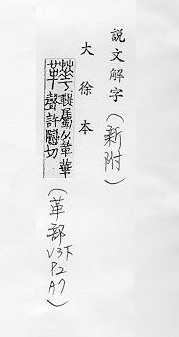 說文解字（新附）
大徐本
鞮屬从革華
聲許切
（革部
V3下
P2
A7）